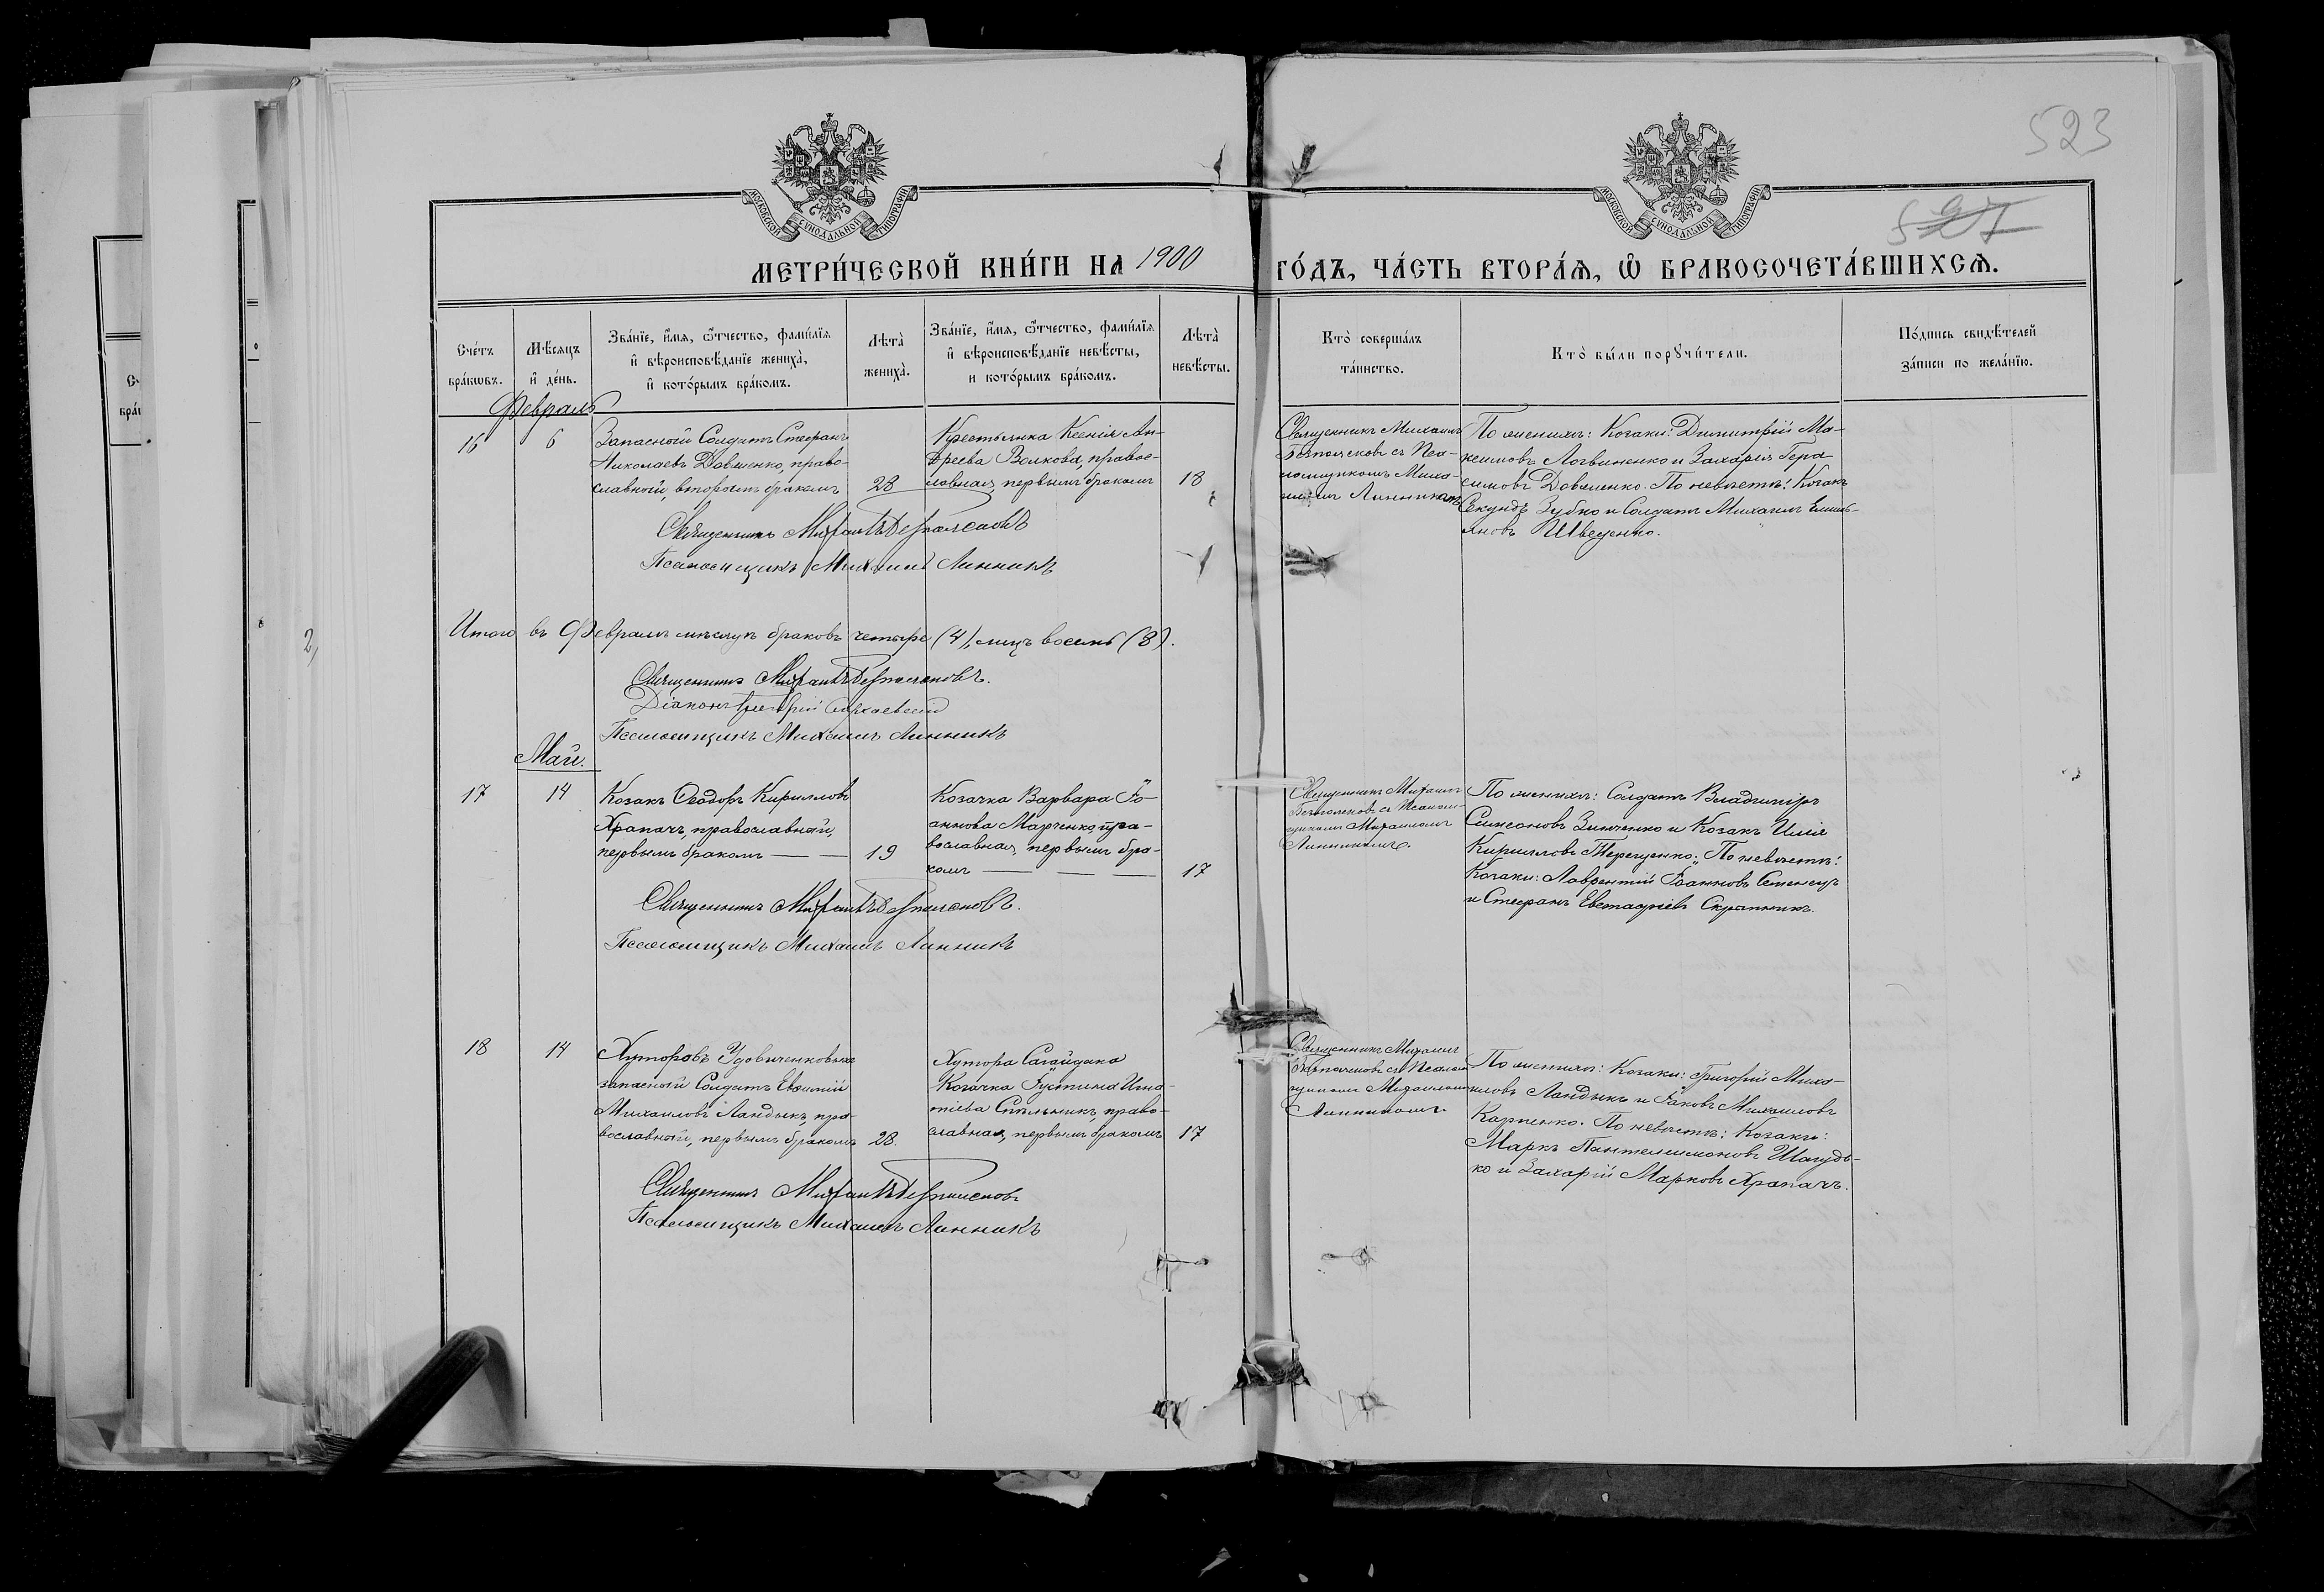 523
527
МОСКОВСКОЙ СѴНОДАЛЬНОЙ ТИПОГРАФІИ
МОСКОВСКОЙ СѴНОДАЛЬНОЙ ТИПОГРАФІИ
МЕТРИ́ЧЕСКОЙ КНИ́ГИ НА 1900 ГО́ДЪ, ЧА́СТЬ ВТОРА́Ѧ, Ѡ҆ БРАКОСОЧЕТА́ВШИХСѦ.
Сче́тъ
бра́кѡвъ.
Мѣ́сѧцъ
и҆ де́нь.
Зва́нїе, и҆́мѧ, ѻ҆́тчество, фами́лїѧ
и҆ вѣроисповѣ́данїе жениха̀,
и҆ кото́рымъ бра́комъ.
Лѣта̀
жениха̀.
Зва́нїе, и҆́мѧ, ѻ҆́тчество, фами́лїѧ
и҆ вѣроисповѣ́данїе невѣ́сты,
и кото́рымъ бра́комъ.
Лѣта̀
невѣ́сты.
Кто̀ соверша́лъ
та́инство.
Кто̀ бы́ли порꙋчи́тели.
По́дпись свидѣ́телей
за́писи по жела́нїю.
Февраль
16
6
Запасной Солдатъ Стефанъ
Николаевъ Довженко, право-
славный, вторымъ бракомъ
28
Крестьянка Ксенія Ан-
дреева Волкова, правос-
лавная, первымъ бракомъ
18
Священникъ Михаилъ
с Пса-
ломщикомъ Миха-
иломъ Линникомъ
По женихѣ: Козаки: Димитрій Ма-
ксимовъ Логвиненко и Захарія Гера-
симовъ Довженко. По невѣстѣ: Козакъ
Зубко и Солдатъ Михаилъ Емель-
яновъ Шведенко.
Священникъ Михаилъ
Псаломщикъ Михаилъ Линникъ
Итого въ Февралѣ мѣсяцѣ браковъ четыре (4), лицъ восемь (8).
Священникъ Михаилъ
Діаконъ Григорій
Псаломщикъ Михаилъ Линникъ
Май.
17
14
Козакъ Ѳеодоръ Кирилловъ
Храпачъ, православный,
первымъ бракомъ — —
19
Козачка Варвара Іо-
аннова Марченко, пра-
вославная, первымъ бра-
комъ — — —
17
Священникъ Михаилъ
с Псалом-
щикомъ Михаиломъ
Линникомъ.
По женихѣ: Солдатъ Владиміръ
Симеоновъ Зинченко и Козакъ Илія
Кирилловъ Терещенко; По невѣстѣ:
Козаки: Лаврентій Іоанновъ Семенецъ
и Стефанъ Евстафіевъ Скрипникъ.
Священникъ Михаилъ
Псаломщикъ Михаилъ Линникъ
18
14
Хуторовъ Удовиченковыхъ
запасной Солдатъ Евѳимій
Михаиловъ Ландыкъ, пра-
вославный, первымъ бракомъ
28
Хутора Сагайдака
Козачка Іустина Игна-
тіева Спѣльникъ, право-
славная, первымъ бракомъ
17
Священникъ Михаилъ
с Псалом-
щикомъ Михаиломъ
Линникомъ.
По женихѣ: Козаки: Григорій Миха-
иловъ Ландыкъ и Іаковъ Михаиловъ
Карпенко. По невѣстѣ: Козаки:
Маркъ Пантелеимоновъ Шагудь-
ко и Захарій Марковъ Храпачъ.
Священникъ Михаилъ
Псаломщикъ Михаилъ Линникъ